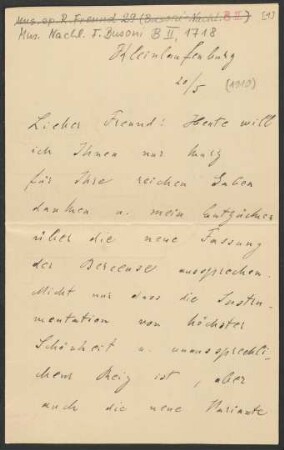 Mus. ep. R. Freund 29 (Busoni-Nachl. B II) [1]
Mus. Nachl. F. Busoni B II, 1718
Kleinlaufenburg
20/5 (1910)
Lieber Freund! Heute will
ich Ihnen nur kurz
für Ihre reichen Gaben
danken u. mein Entzücken
über die neue Fassung
der Berceuse aussprechen.
Nicht nur dass die Instru-
mentation von höchster
Schönheit u. unaussprechli-
chem Reiz ist, aber
auch die neue Variante